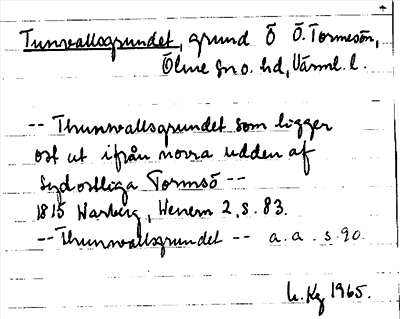 Tunvallsgrundet, grund Ö Ö. Tormsön,
Ölme sn o. hd, Värml. l.
-- Thunwallsgrundet som ligger
ost ut ifrån norra udden af
Sydostliga Tormsö --
1815 Warberg, Wenern 2, s. 83.
-- Thunwallsgrundet -- a. a. s. 90.
Kg 1965.